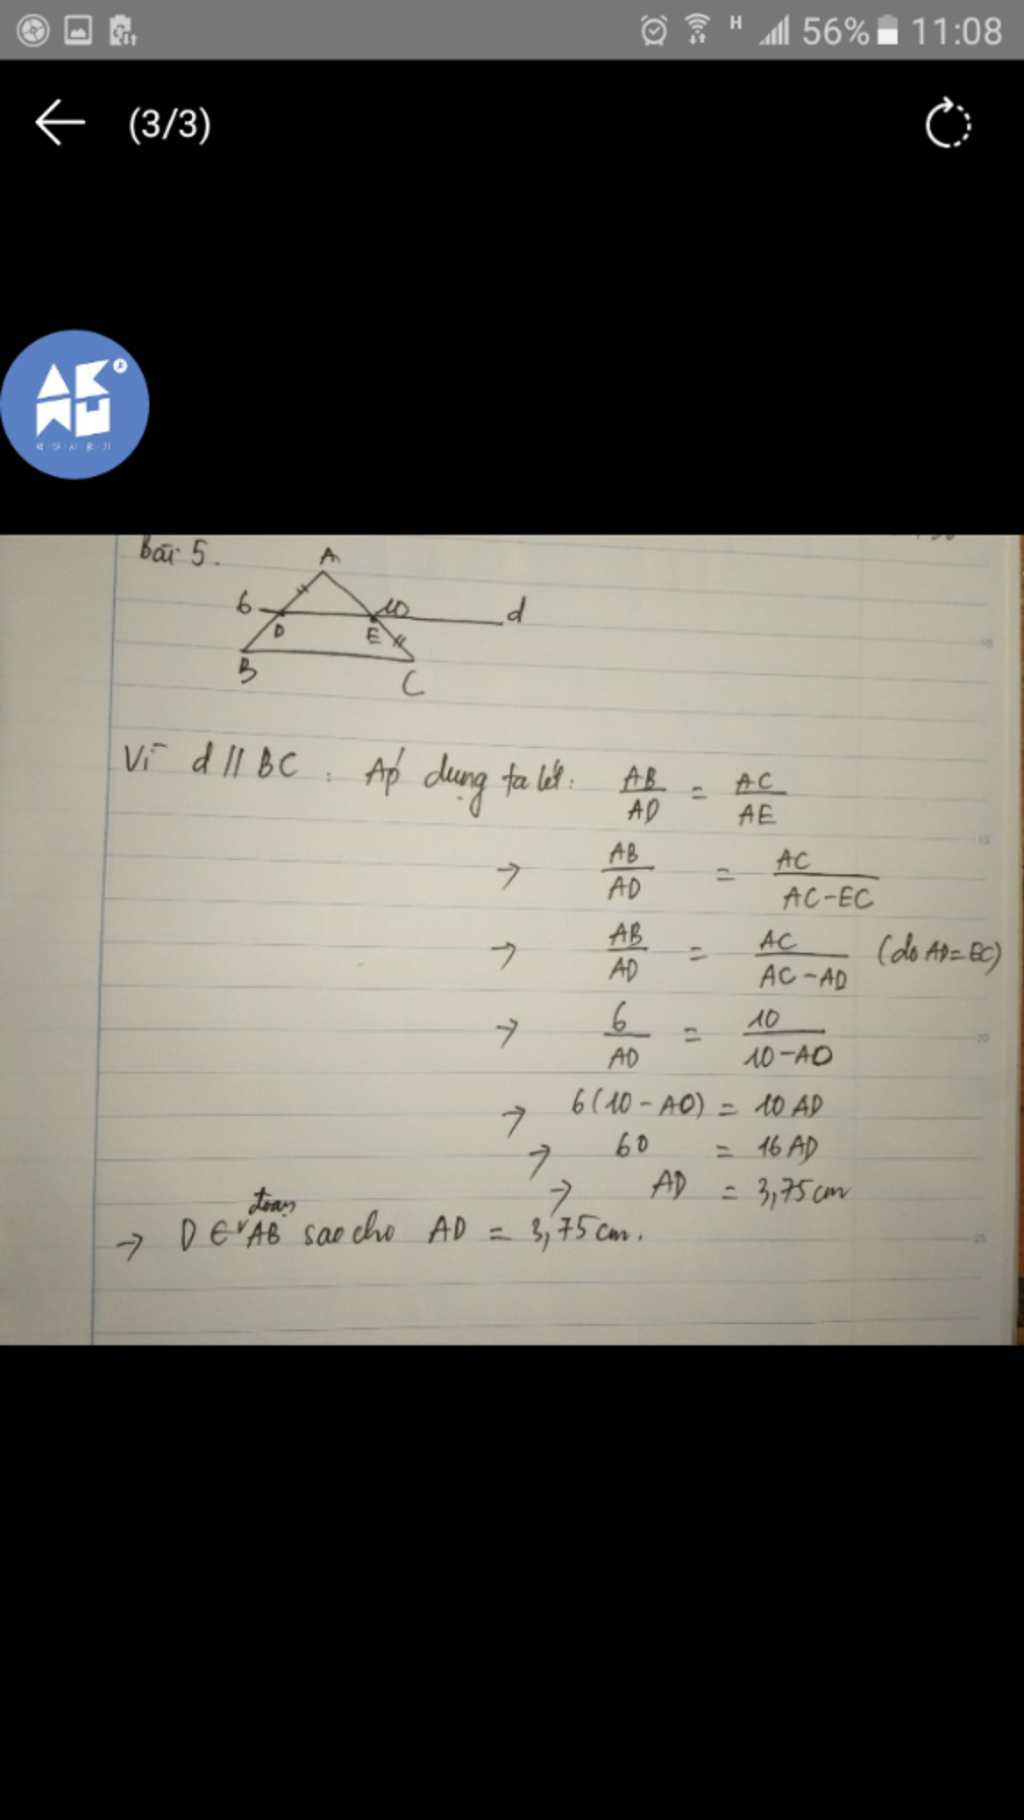 56% 11:08
(3/3)
Bài 5.
A
6 10 d
D E
B C
Vì d // BC. Áp dụng ta lét: AB/AD = AC/AE
→ AB/AD = AC/AC-EC
→ AB/AD = AC/AC-AD (do AD=EC)
→ 6/AD = 10/10-AD
→ 6(10-AD) = 10AD
→ 60 = 16AD
→ AD = 3,75cm
đoạn
→ D ∈ AB sao cho AD = 3,75cm.